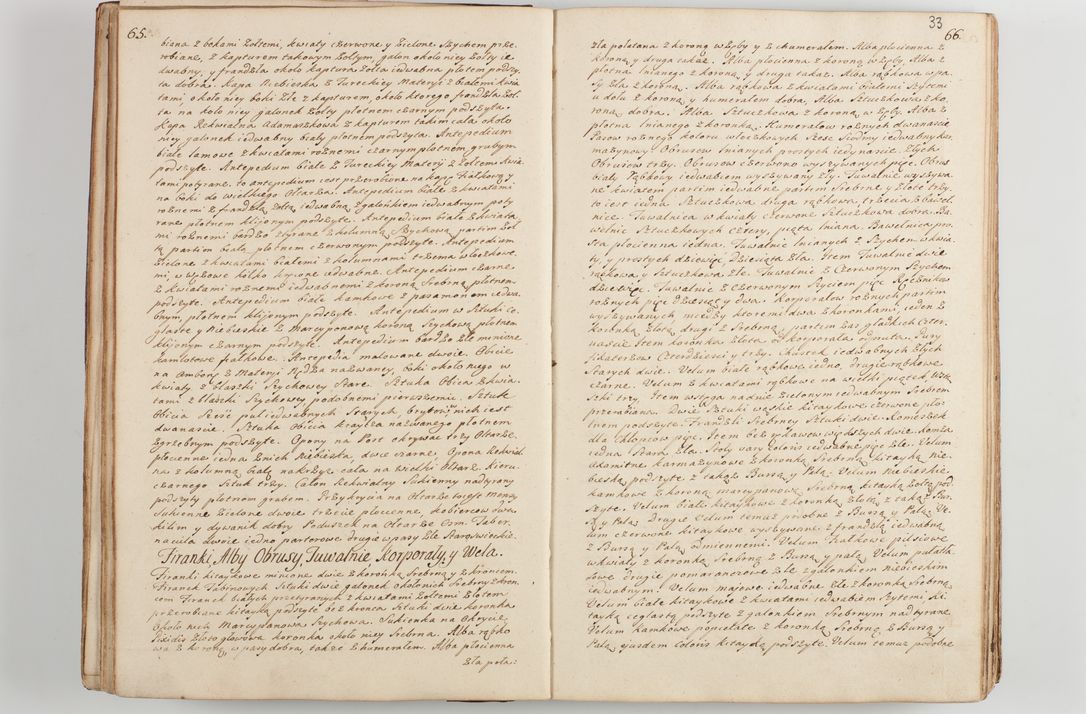 65.
biana z bokami żołtemi, kwiaty czerwone y zielone szychem prze
robiane, z kapturem takowym żołtym, galon około niey żołty ie
dwabny, y frandzla około kaptura żołta iedwabna płotem podszy
ta dobra. Kapa Niebieska z Tureckiey Materyi z białemi kwia
tami około niey boki złe z kapturem około ktorego frandzla żoł
ta na koło niey galonek żołty płotnem czarnym podszyta.
Kapa Rekwialna Adamaszkowa z kapturem takim cała około
niey galonek iedwabny biały płotnem podszyta. Antepedium
białe lamowe z kwiatami rożnemi czarnym płotnem grubym
podszyte. Antepedium białe z Tureckiey Materyi z żołtemi kwia
tami potyrane, to antepedium iest przerobione na kapę fiałkową y
na boki do wielkiego Ołtarza. Antepedium białe z kwiatami
rożnemi z frandzlą żołtą iedwabną z galonkiem iedwabnym poty
rane płotnem klijonym podszyte. Antepedium białe z kwiata
mi rożnemi bardzo ztyrane z kolumną szychową partim żoł
tą partim białą, płotnem czerwonym podszyte. Antepedium
zielone z kwiatami białemi z kolumnami trzema włoczkowe
mi, w wyzowe kołko kręcone iedwabne. Antepedium czarne
z kwiatami rożnemi iedwabnemi z koroną srebrną płotnem
podszyte. Antepedium białe kamkowe z pasamonem iedwa
bnym, płotnem klijonym podszyte. Antepedium w sztuki ce
glaste y Niebieskie z Marcyponową koroną szychową płotnem
klijonym czarnym podszyte. Antepedium bardzo złe mienione
kamlotowe fiałkowe. Antepedia malowane dwoie. Obicie
na Ambonę z Materyi Nędza nazwaney, boki około niego w
kwiaty z blaszki szychowey stare. Sztuka Obicia z kwia
tami z blaszki szychowey podobnemi pierwszemu. Sztuk
Obicia sześć puł iedwabnych starych, brytow w nich iest
dwanaście. Sztuka Obicia krayza nazwanego płotnem
zgrzebnym podszyte. Opony na Post okrywać trzy Ołtarze
płocienne iedna z nich Niebieska, dwie czarne. Opona Rekwial
na z kolumną białą na krzyż cała na wielki Ołtarz. Kieru
czarnego sztuk trzy. Całon Rekwialny sukienny nadtyrany
podszyty płotnem grubem. Przykrycia na Ołtarze twoje mensy
sukienne zielone dwoie trzecie płocienne, kobiercow owe
kilim y dywanik dobry. Poduszek na Ołtarze Orm. Taber
nacula dwoie iedno parterowe drugie w pasy złe Staroswieckie.
Firanki, Alby Obrusy, Tuwalnie, Korporały, y Wela.
Firanki kitaykowe mienione dwie z koronką srebrną y z kroncem.
Firanek Tabinowych sztuki dwie galonek około nich srebrny z kron
cem Firanek białych przetyranych z kwiatami żołtemi złotem
przerobiane kitayką podszyte bez kronca sztuki dwie koronka
około nich Marcyponowa szychowa. Sukienka na Okrycie
Pixidis złotogłowowa koronka około niey srebrna. Alba rąbko
wa z koroną, w pasy dobra, także z humerałem. Alba płocienna
zła poła:
33
66.
zła połatana z koroną w zęby y z humerałem. Alba płocienna z
koroną y druga takaż. Alba płocienna z koroną w zęby. Alba z
płotna lnianego z koroną y druga takaż. Alba rąbkowa w pa
sy zła z koroną. Alba rąbkowa z kwiatami białemi szytemi
u dołu z koroną y humerałem dobra, Alba sztuczkowa z ko
roną dobra. Alba sztuczkowa z koroną w zęby. Alba z
płotna lnianego z koronką. Humerałow rożnych dwanaście
Pasow rożnego koloru włoczkowych sześć siodmy iedwabny kar
mazynowy. Obrusow lnianych prostych iedynaście. Złych
Obrusow trzy. Obrusow czerwono wyszywanych pięć. Obrus
biały rąbkowy iedwabiem wyszywany zły. Tuwalnie wyszywa
ne kwiatem partim iedwabne partim srebrne y złote trzy,
to iest iedna sztuczkowa druga rąbkowa, trzecia z baweł
nice. Tuwalnica w kwiaty czerwone sztuczkowa dobra. Ba
welnic sztuczkowych cztery, piąta lniana. Bawełnica pro
sta płocienna iedna. Tuwalnie lnianych z szychem w kwia
ty, y prostych dziewięć dziesiąta zła. Item Tuwalnie dwie
rąbkowa y sztuczkowa złe. Tuwalnie z czerwonym szychem
dziewięć. Tuwalnie z czerwonym szyciem pięć. Ręcznikow
rożnych pięć dziesiąt y dwa. Korporałow rożnych partim
wyszywanych między ktoremi dwa z koronkami, ieden z
koronką złotą drugi z srebrną, partim zaś gładkich czter
naście Item koronka złota od korporała odpruta. Pury
fikaterzow czterdzieści y trzy. Chustek iedwabnych złych
starych dwie. Velum białe rąbkowe iedno, drugie rąbkowe
czarne. Velum z kwiatami rąbkowe na wielki piątek wszy
stki trzy, Item wstęga na dnie zielonym iedwabnym srebrem
przerabiana. Dwie sztuki wąskie kitaykowe czerwone pło
tnem podszyte. Frandzli srebrney sztuki dwie. Komeszek
dla chłopcow pięć. Item bez rękawow większych dwie. Komża
iedna stara zła. Stoły vary coloris iedwabne pięć złe. Velum
adamitne karmazynowe z koronką srebrną kitayką nie
bieską podszyte z takąż Bursą y Pallą. Velum niebieskie
kamkowe z koroną marcyponową srebrną kitayką żołtą pod
szyte. Velum białe kitaykowe z koronką złotą z takąż Bur
są y Pallą. Drugie Velum temuż podobne z Bursą y Pallą. Ve
lum czerwone kitaykowe wyszywane z frandzlą iedwabną
z Bursą y Pallą odmiennemi. Velum fiałkowe pilsiowe
w kwiaty z koronką srebrną z Bursą y pallą. Velum pułatła
sowe drugie pomaranczowe złe z galonkiem Niebieskim
iedwabnym. Velum majowe, iedwabne złe z koronką srebrną.
Velum białe kitaykowe z kwiatami iedwabiem szytemi ki
tayką ceglastą podszyte z galonkiem srebrnym nadtyrane.
Velum kamkowe popielate z koronką srebrną z Bursą y
Pallą, ejusdem coloris kitayką podszyte. Velum temuż podobne